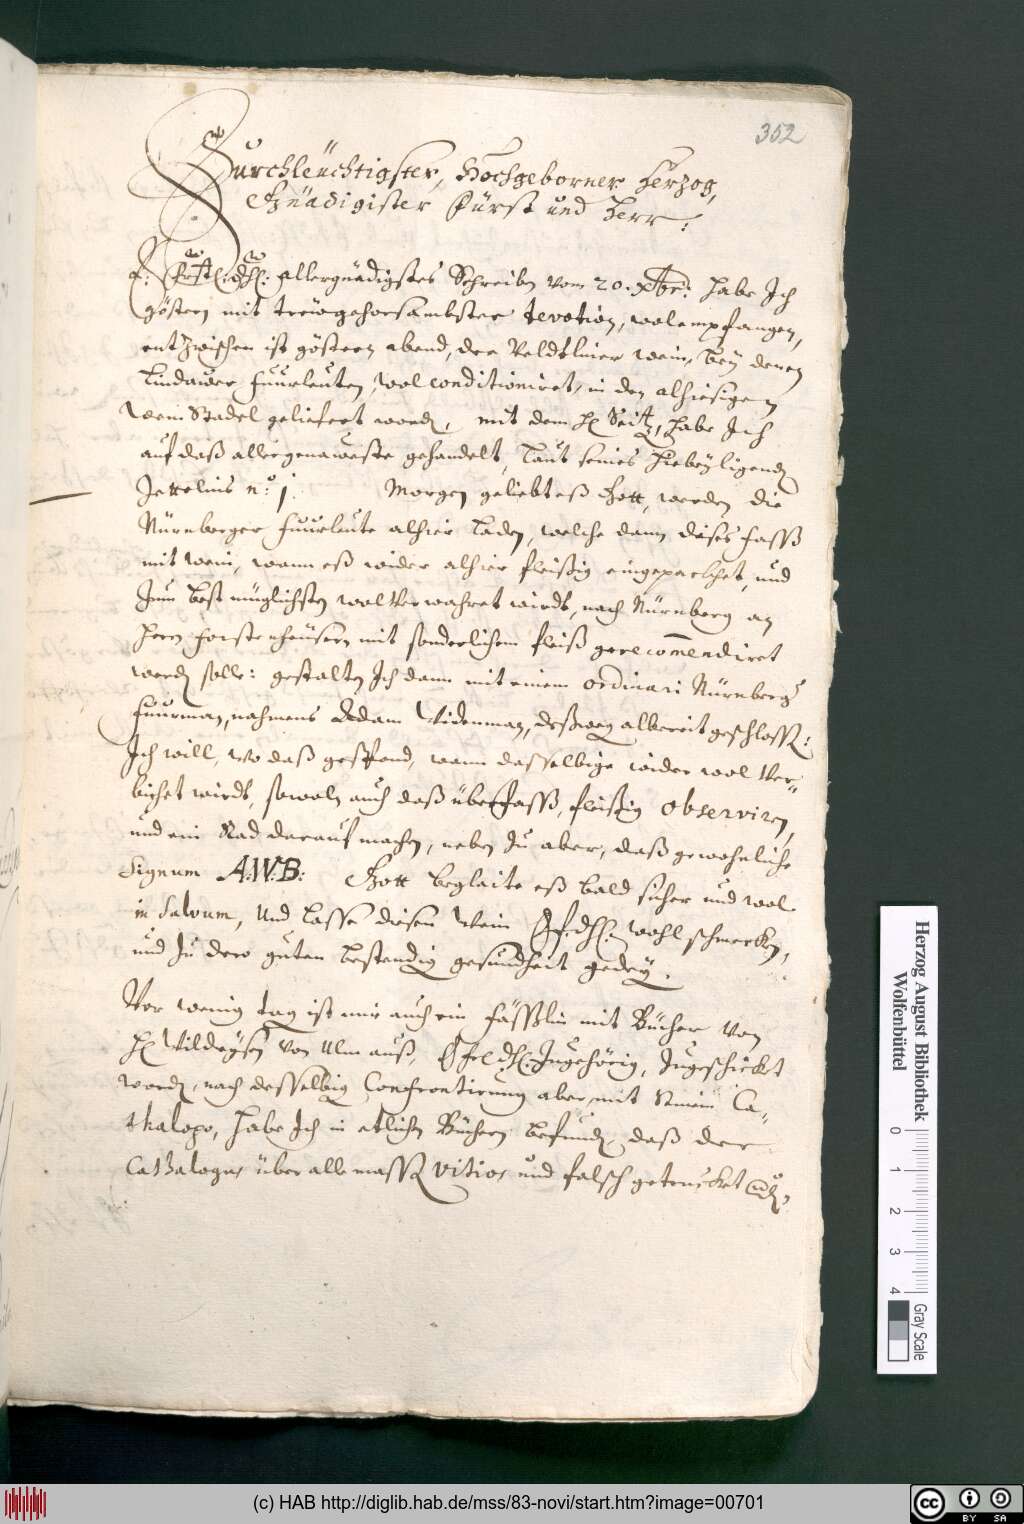 352
Durchleüchtigster, Hochgeborner Herzog,
Gnädigister Fürst und Herr:
E: Fürstl: Dhl: allergnädigstes Schreiben vom 20. xbr: habe Ich
göstern mit trewgehorsambster devotion, wol empfangen,
entzwischen ist göstern abend, der Veldtliner wein, bey denen
Lindawer fuurleuten, wol conditioniret, in den alhiesigen
wein Stadel geliefert worden, mit dem H Seitz, habe Ich
auf daß aller genaweste gehandelt, laut seines hiebey ligenden
Zettelins n.° 1. Morgen geliebts Gott, werden die
Nürnberger fuurleute alhier laden, welche dann dises fass
mit wein, wann eß wider alhier fleißig eingepackhet, und
Zum best müglichsten wol verwahret wirdt, nach Nürnberg an
Herrn forstenheüsern mit sonderlichem fleiß gerecomendiret
werden solle: gestalten Ich dann mit einem ordinari Nürnberger
fuurman, nahmens Adam Widenman, deßwegen albereit geschlossen:
Ich will, wo daß gespond, wann dasselbige wider wol ver-
bichet wirdt, sowoln auch daß überfass, fleißig observiren,
und ein Rad darauf machen, neben Zu aber, daß gewohnliche
Signum A:W:B: Gott beglaite eß bald sicher und wol
in Salvum, Und lasse disen Wein E.f.Dhl: wohl schmecken,
und Zu dero guten bestendigen gesundheit gedeyen.
Vor wenig tagen ist mir auch ein fässlin mit Bücher von
H Wildeysen von Ulm auß, E.frl.Dhl: Zugehörig, Zugeschickt
worden, nach desselbigen Confrontirung aber, mit Seinem Ca-
thalogo, habe Ich in etlichen Büchern befunden, daß der
Cathalogus über alle massen vitios und falsch getruckt
Herzog August Bibliothek
Wolfenbüttel
0 1 2 3 4
Gray Scale
(c) HAB http://diglib.hab.de/mss/83-novi/start.htm?image=00701
CC BY SA